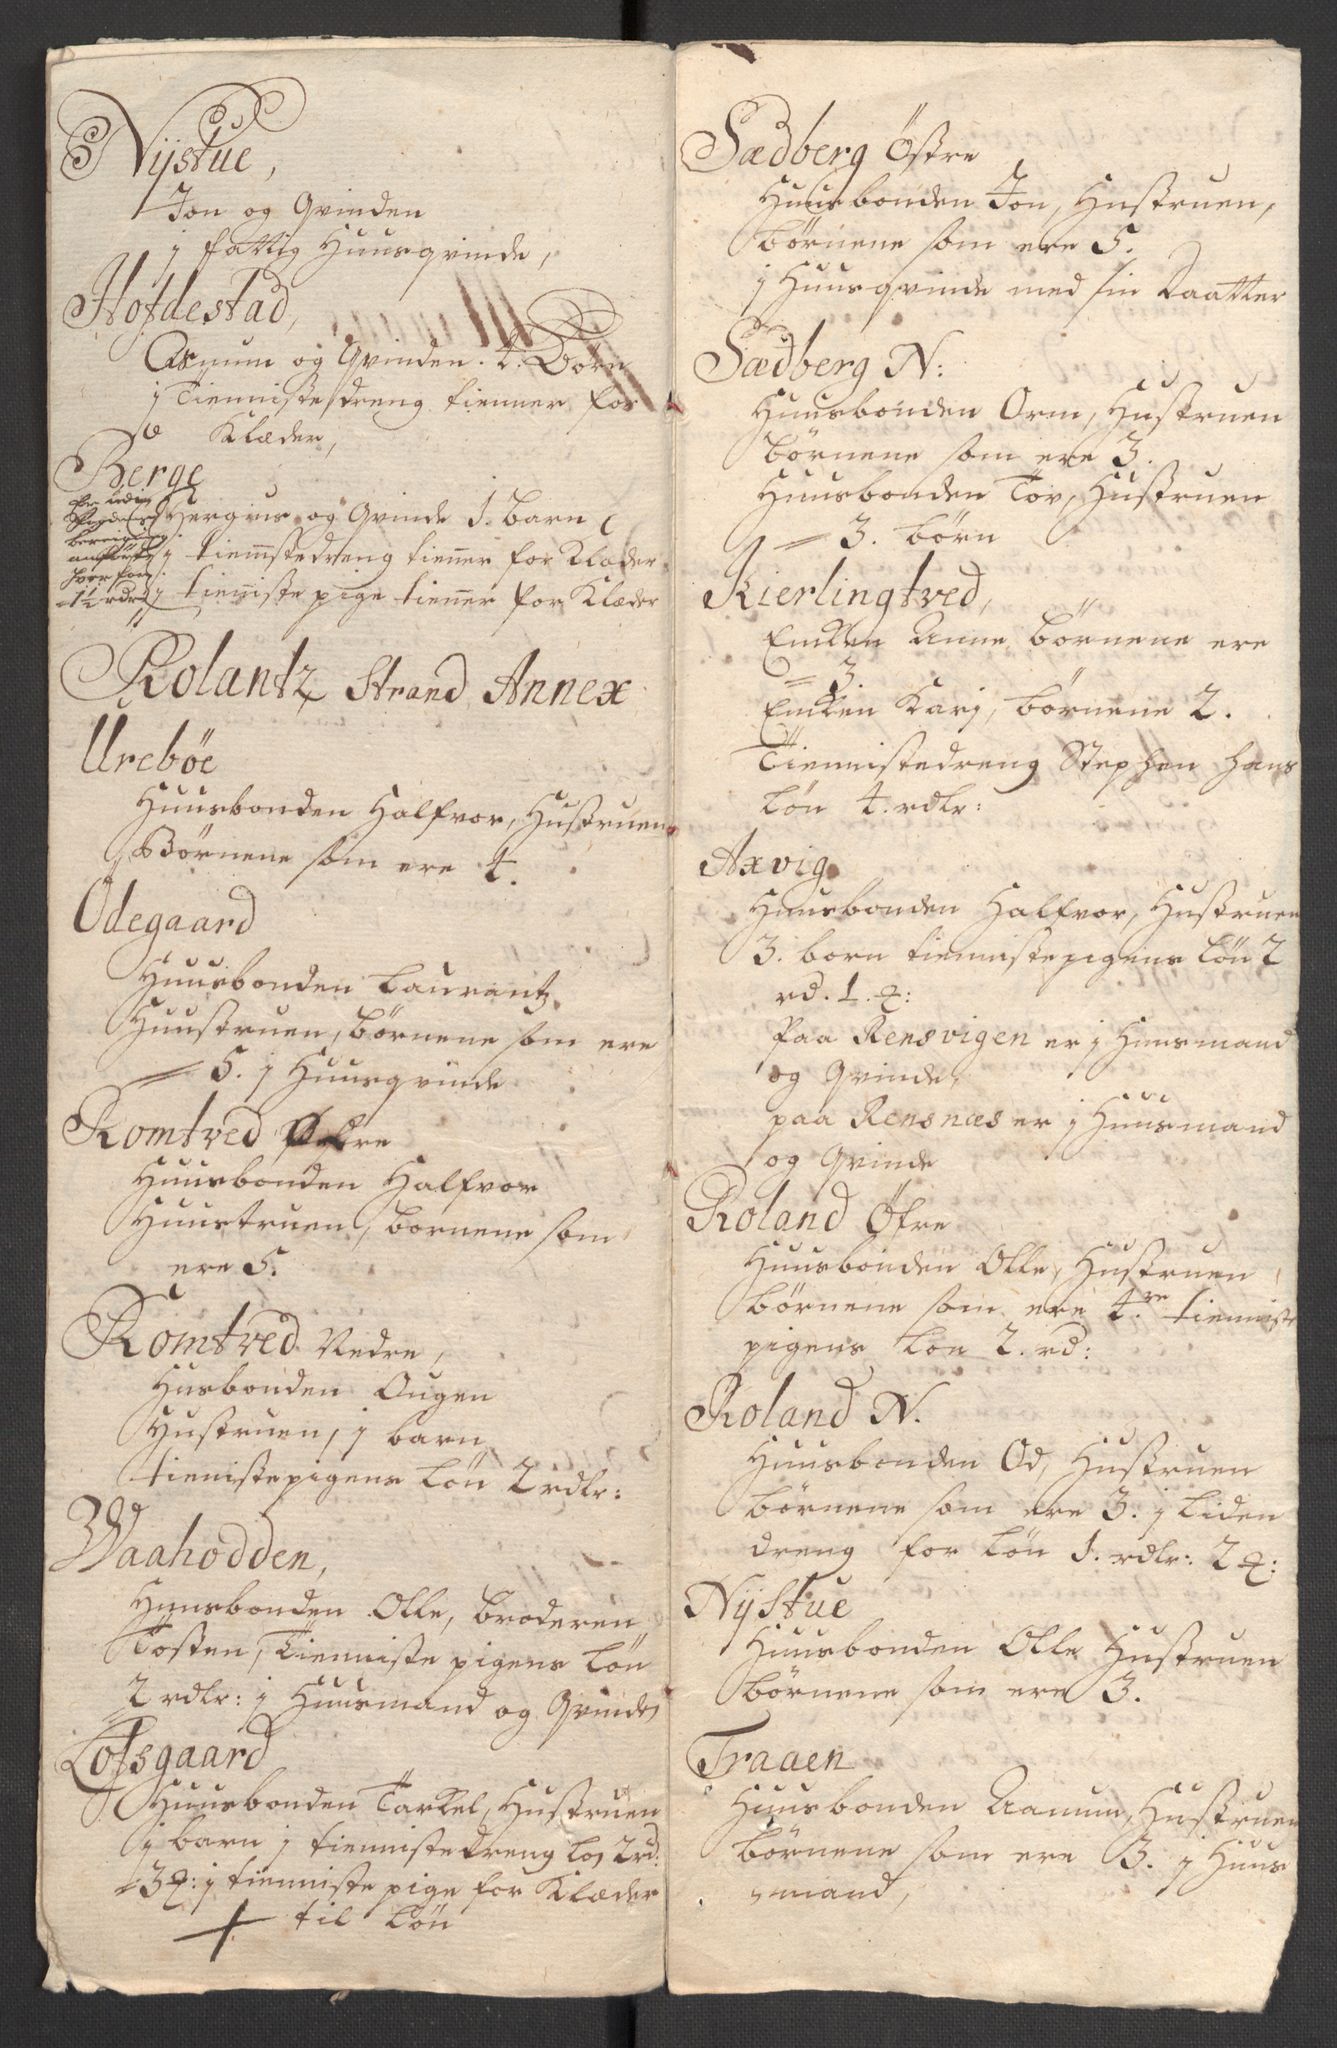 Nijstue,
Jon og Qvinden
j fattig Huusqvinde,
Hofdestad,
Asmum og Qvinden. 4. Børn
j Tiennistedreng tienner for
Klæder,
Berge
hvorfor
1½ rdr
Hergius og Qvinde 1. barn
j tiennistedreng tienner for Klæder
j tienniste pige tienner for Klæder
Rolantz Strand Annex
Urebøe
Huusbonden Halfvor, Hustruen
Børnene som ere 4.
Odegaard
Huusbonden Laurantz
Huustruen, børnene som ere
5. j Huusqvinde
Romtved Øfre
Huusbonden Halfvor
Huustruen, børnene som
ere 5.
Romtved Nedre,
Husbonden Ougen
Hustruen, j barn
tienistepigens løn 2 rdlr:
Waahodden,
Huusbonden Olle, broderen
Tosten, Tienniste pigens løn
2 rdlr: j Huusmand og Qvinde
Lofsgaard
Huusbonden Tarkel, Hustruen
j barn j tiennistedreng løn 2 rd.
3 ꝗ: j tienniste pige for Klæder
til løn
Sædberg Østre
Huusbonden Jon, Hustruen,
børnene som ere 5.
j Huusqvinde med sin Daatter
Sædberg N:
Huusbonden Orm, Hustruen
børnene som ere 3.
Huusbonden Tov, Hustruen
3. børn
Kierlingtved,
Encken Anne børnene ere
3.
Encken Karj, børnene 2.
Tiennistedreng Stephen hans
løn 4. rdlr:
Axvig
Huusbonden Halfvor, Hustruen
3. børn tiennistepigens løn 2
rd. 1. ꝗ:
Paa Rensvigen er j Huusmand
og Qvinde,
paa Rensnæs er j Huusmand
og Qvinde
Roland Øfre
Huusbonden Olle, Hustruen
børnene som ere 4.re tienniste
pigens løn 2. rd:
Roland N.
Huusbonden Od, Hustruen
børnene som ere 3. j liden
dreng for løn 1. rdlr: 2 ꝗ:
Nijstue
Huusbonden Olle Hustruen
børnene som ere 3.
Traaen
Huusbonden Aanum, Hustruen
børnene som ere 3. j Huus
mand,